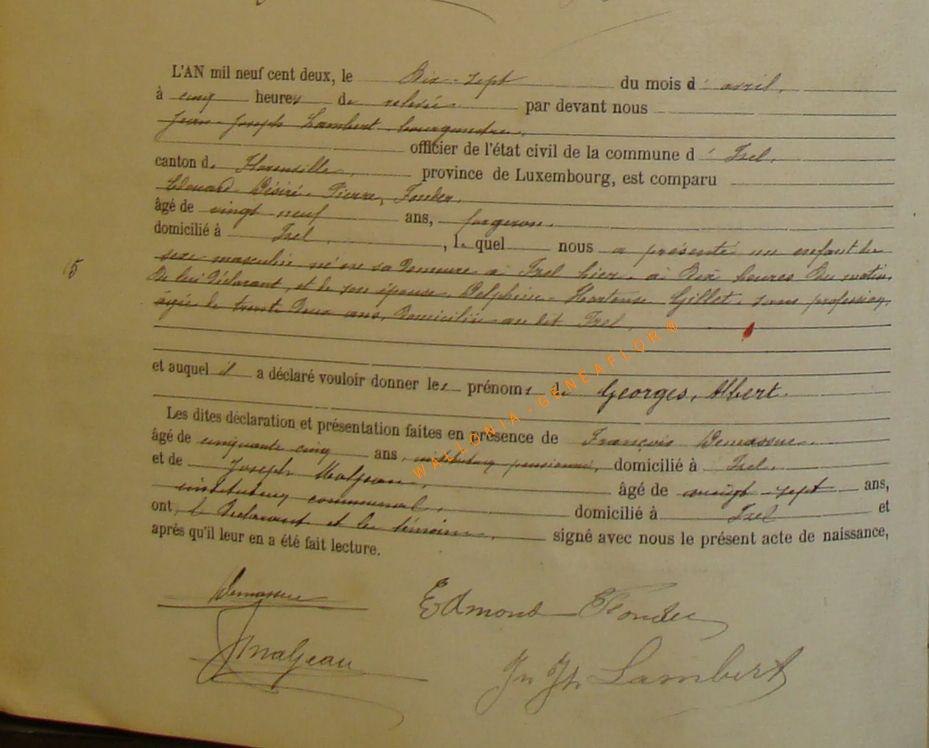 L'AN mil neuf cent deux, le Dix-sept du mois d'avril,
à cinq heures de relevée par devant nous
Jean-Joseph Lambert bourgmestre,
officier de l'état civil de la commune d'Izel,
canton de Florenville, province de Luxembourg, est comparu
Edouard Désiré Pierre,
âgé de vingt neuf ans, forgeron,
domicilié à Izel, lequel nous a présenté un enfant du
5
sexe masculin né en sa demeure à Izel hier à Dix heures du matin,
De lui Déclarant, et de son épouse Delphine-Hortense Gillet, sans profession,
âgée de trente Deux ans, Domiciliée au dit Izel,
et auquel il a déclaré vouloir donner les prénoms de Georges, Albert.
Les dites déclaration et présentation faites en présence de François
âgé de cinquante cinq ans, instituteur pensionné, domicilié à Izel,
et de Joseph Maljean, âgé de vingt-sept ans,
instituteur communal, domicilié à Izel et
ont, le Déclarant et les témoins, signé avec nous le présent acte de naissance,
après qu'il leur en a été fait lecture.
Edmond
Maljean
Jn Jh Lambert
WALLONIA-GENEAFLOR®